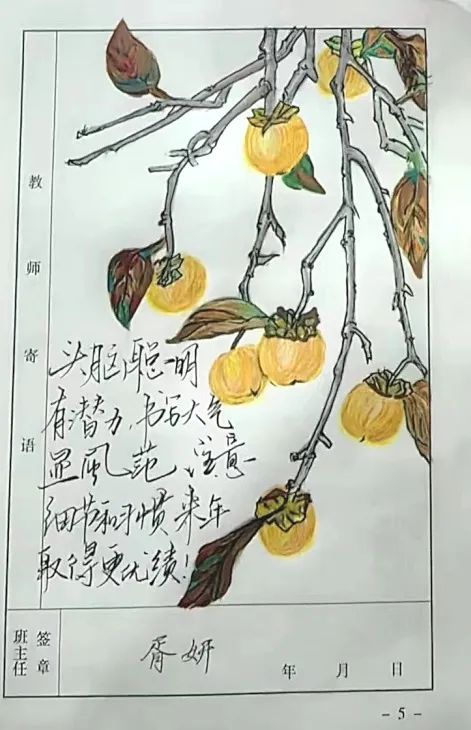 教师寄语
头脑聪明
有潜力,书写大气
显風范,注意
细节和习惯来年
取得更优绩!
班主任
签章
胥妍
年 月 日
- 5 -